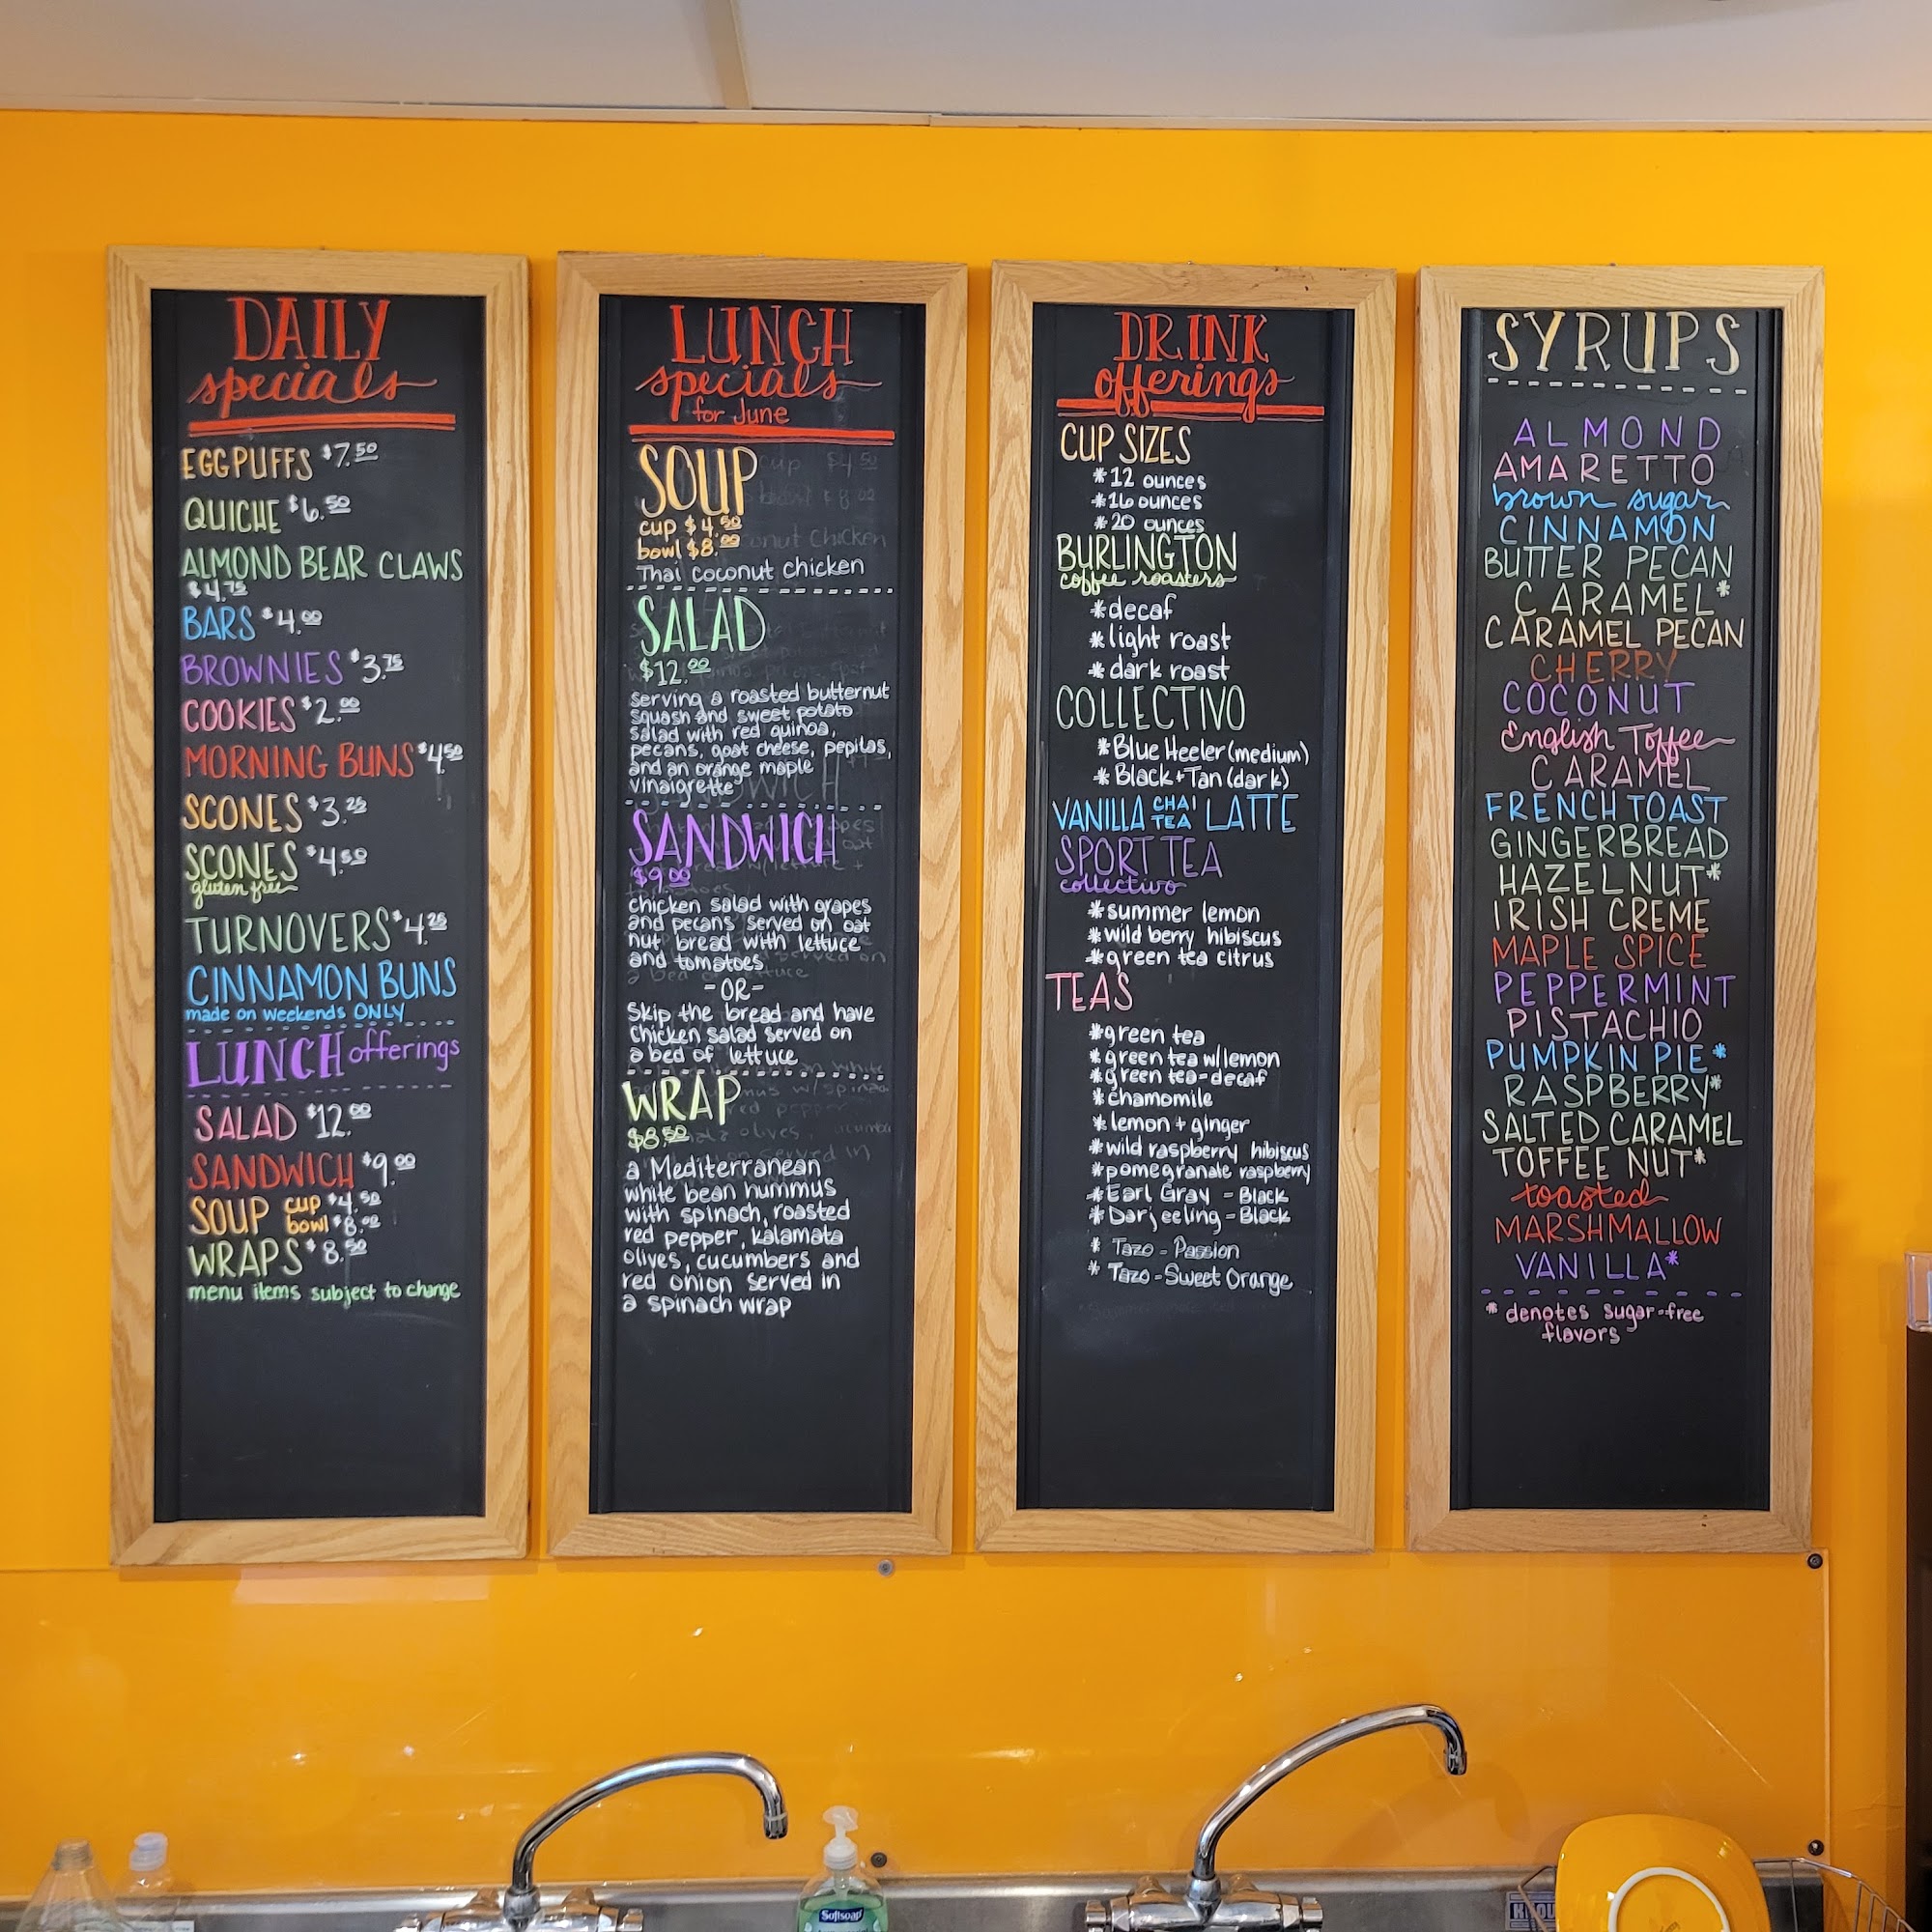 DAILY
specials
EGG PUFFS $7.50
QUICHE $6.50
ALMOND BEAR CLAWS
$4.75
BARS $4.00
BROWNIES $3.75
COOKIES $2.00
MORNING BUNS $4.50
SCONES $3.25
SCONES $4.50
gluten free
TURNOVERS $4.25
CINNAMON BUNS
made on weekends ONLY
LUNCH offerings
SALAD $12.00
SANDWICH $9.00
SOUP cup $4.50
bowl $8.00
WRAPS $8.50
menu items subject to change
LUNCH
specials
for June
SOUP
cup $4.50
bowl $8.00
Thai coconut chicken
SALAD
$12.00
serving a roasted butternut
squash and sweet potato
salad with red quinoa,
pecans, goat cheese, pepitas,
and an orange maple
vinaigrette
SANDWICH
$9.00
chicken salad with grapes
and pecans served on oat
nut bread with lettuce
and tomatoes
-OR-
Skip the bread and have
chicken salad served on
a bed of lettuce
WRAP
$8.50
a Mediterranean
white bean hummus
with spinach, roasted
red pepper, kalamata
olives, cucumbers and
red onion served in
a spinach wrap
DRINK
offerings
CUP SIZES
*12 ounces
*16 ounces
*20 ounces
BURLINGTON
coffee roasters
*decaf
*light roast
*dark roast
COLLECTIVO
*Blue Heeler (medium)
*Black + Tan (dark)
VANILLA CHAI TEA LATTE
SPORT TEA
collectivo
*summer lemon
*wild berry hibiscus
*green tea citrus
TEAS
*green tea
*green tea w/lemon
*green tea-decaf
*chamomile
*lemon + ginger
*wild raspberry hibiscus
*pomegranate raspberry
*Earl Gray - Black
*Darjeeling - Black
* Tazo - Passion
* Tazo - Sweet Orange
SYRUPS
ALMOND
AMARETTO
brown sugar
CINNAMON
BUTTER PECAN
CARAMEL*
CARAMEL PECAN
CHERRY
COCONUT
English Toffee
CARAMEL
FRENCH TOAST
GINGERBREAD
HAZELNUT*
IRISH CREME
MAPLE SPICE
PEPPERMINT
PISTACHIO
PUMPKIN PIE*
RASPBERRY*
SALTED CARAMEL
TOFFEE NUT*
toasted
MARSHMALLOW
VANILLA*
* denotes sugar-free
flavors
Softsoap